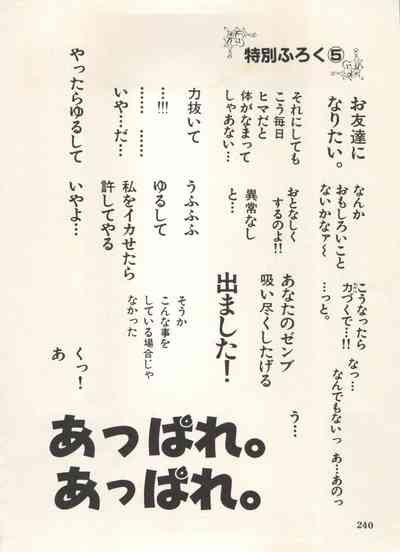 特別ふろく⑤
お友達に
なりたい。
それにしても
こう毎日
ヒマだと
体がなまって
しゃあない…
力抜いて
…!!!
……… ………
いや…だ…
やったらゆるして
なんか
おもしろいこと
ないかなァ〜
おとなしく
するのよ!!
異常なし
と…
うふふふ
ゆるして
私をイカせたら
許してやる
いやよ…
こうなったら
力づくで…!!
…っと。
あなたのゼンブ
吸い尽くしたげる
出ました!
そうか
こんな事を
している場合じゃ
なかった
くっ!
あ
なっ…
なんでもないっ
あ…あのっ
う…
あっぱれ。
あっぱれ。
240